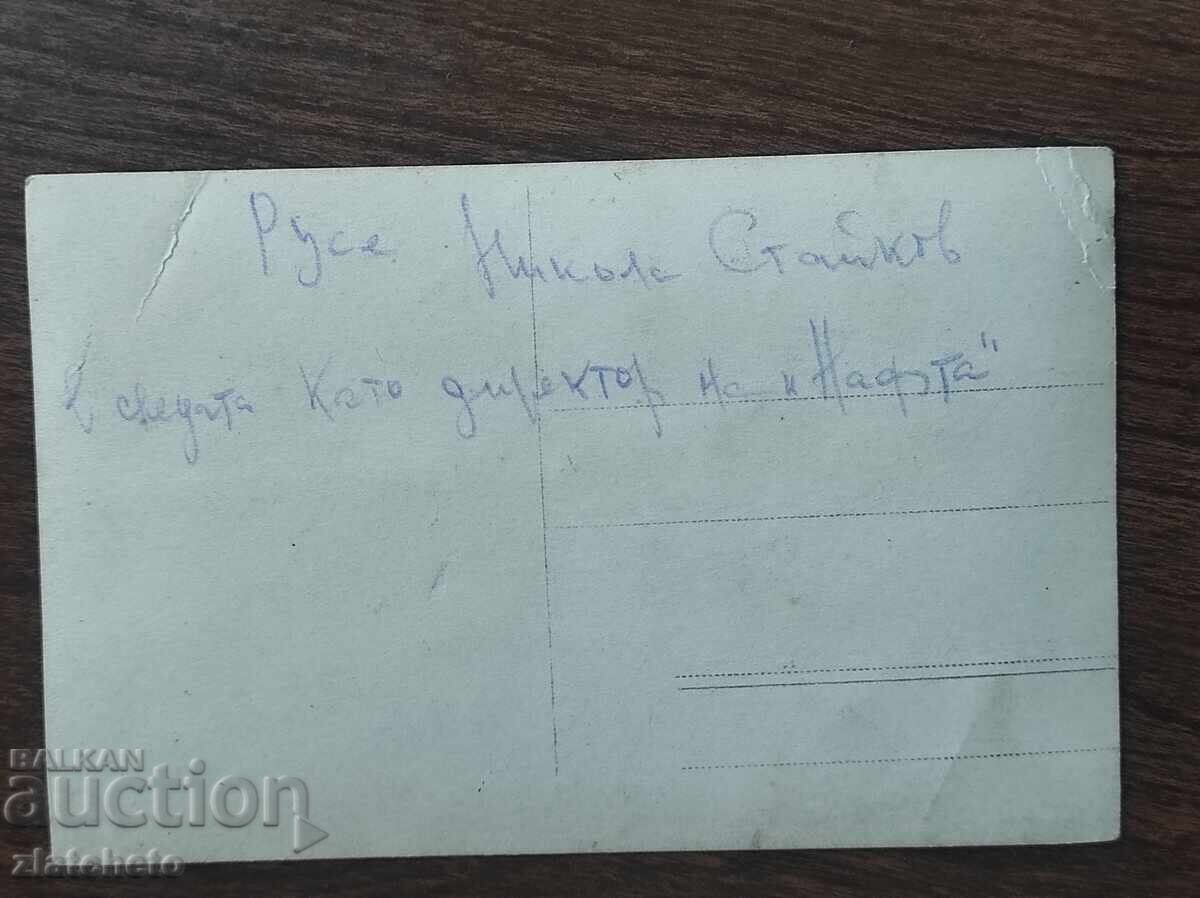 Русе Никола Стайков
в средата като директор на "Нафта"
BALKAN
auction
zlatcheto